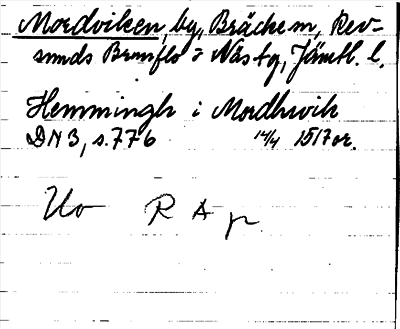 Mordviken, by, Bräcke m, Rev-
sunds Brunflo o Näs tg, Jämtl. l.
Hemmingh i Mordhwik
DN 3, s. 776 14/4 1517 or.
Uo R A p